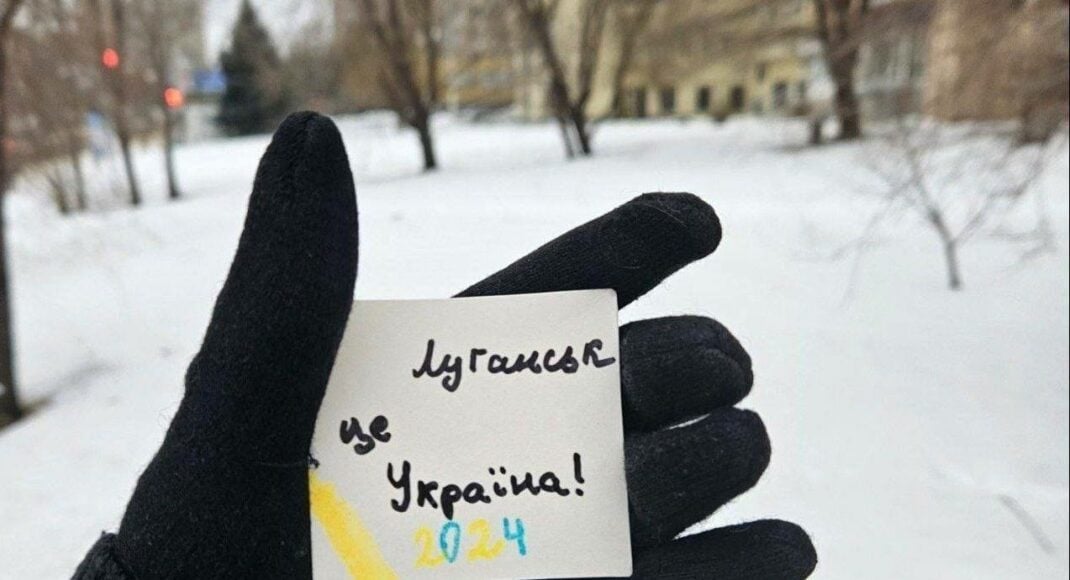 Луганськ
це
Україна!
2024